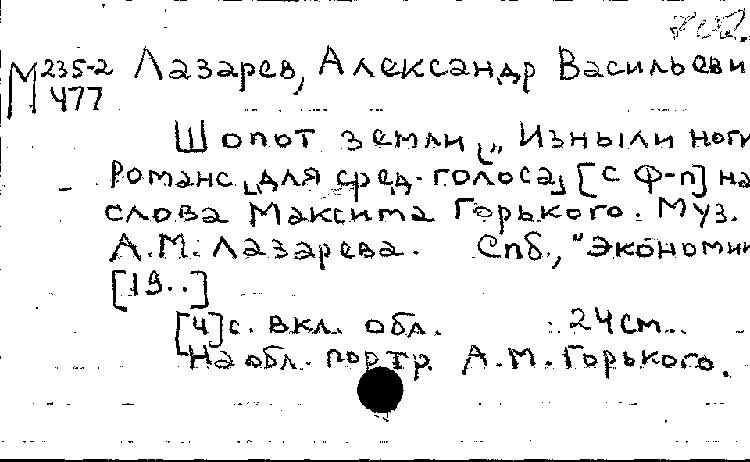 М 235-2 Лазарев, Александр Васильеви
477
Шопот земли „Изныли ноги
Романс для сред. голоса [с ф-п] на
слова Максима Горького. Муз.
А.М. Лазарева. Спб., "Экономик
[19..]
[4] с. вкл. обл. 24 см.
На обл. портр. А.М. Горького.